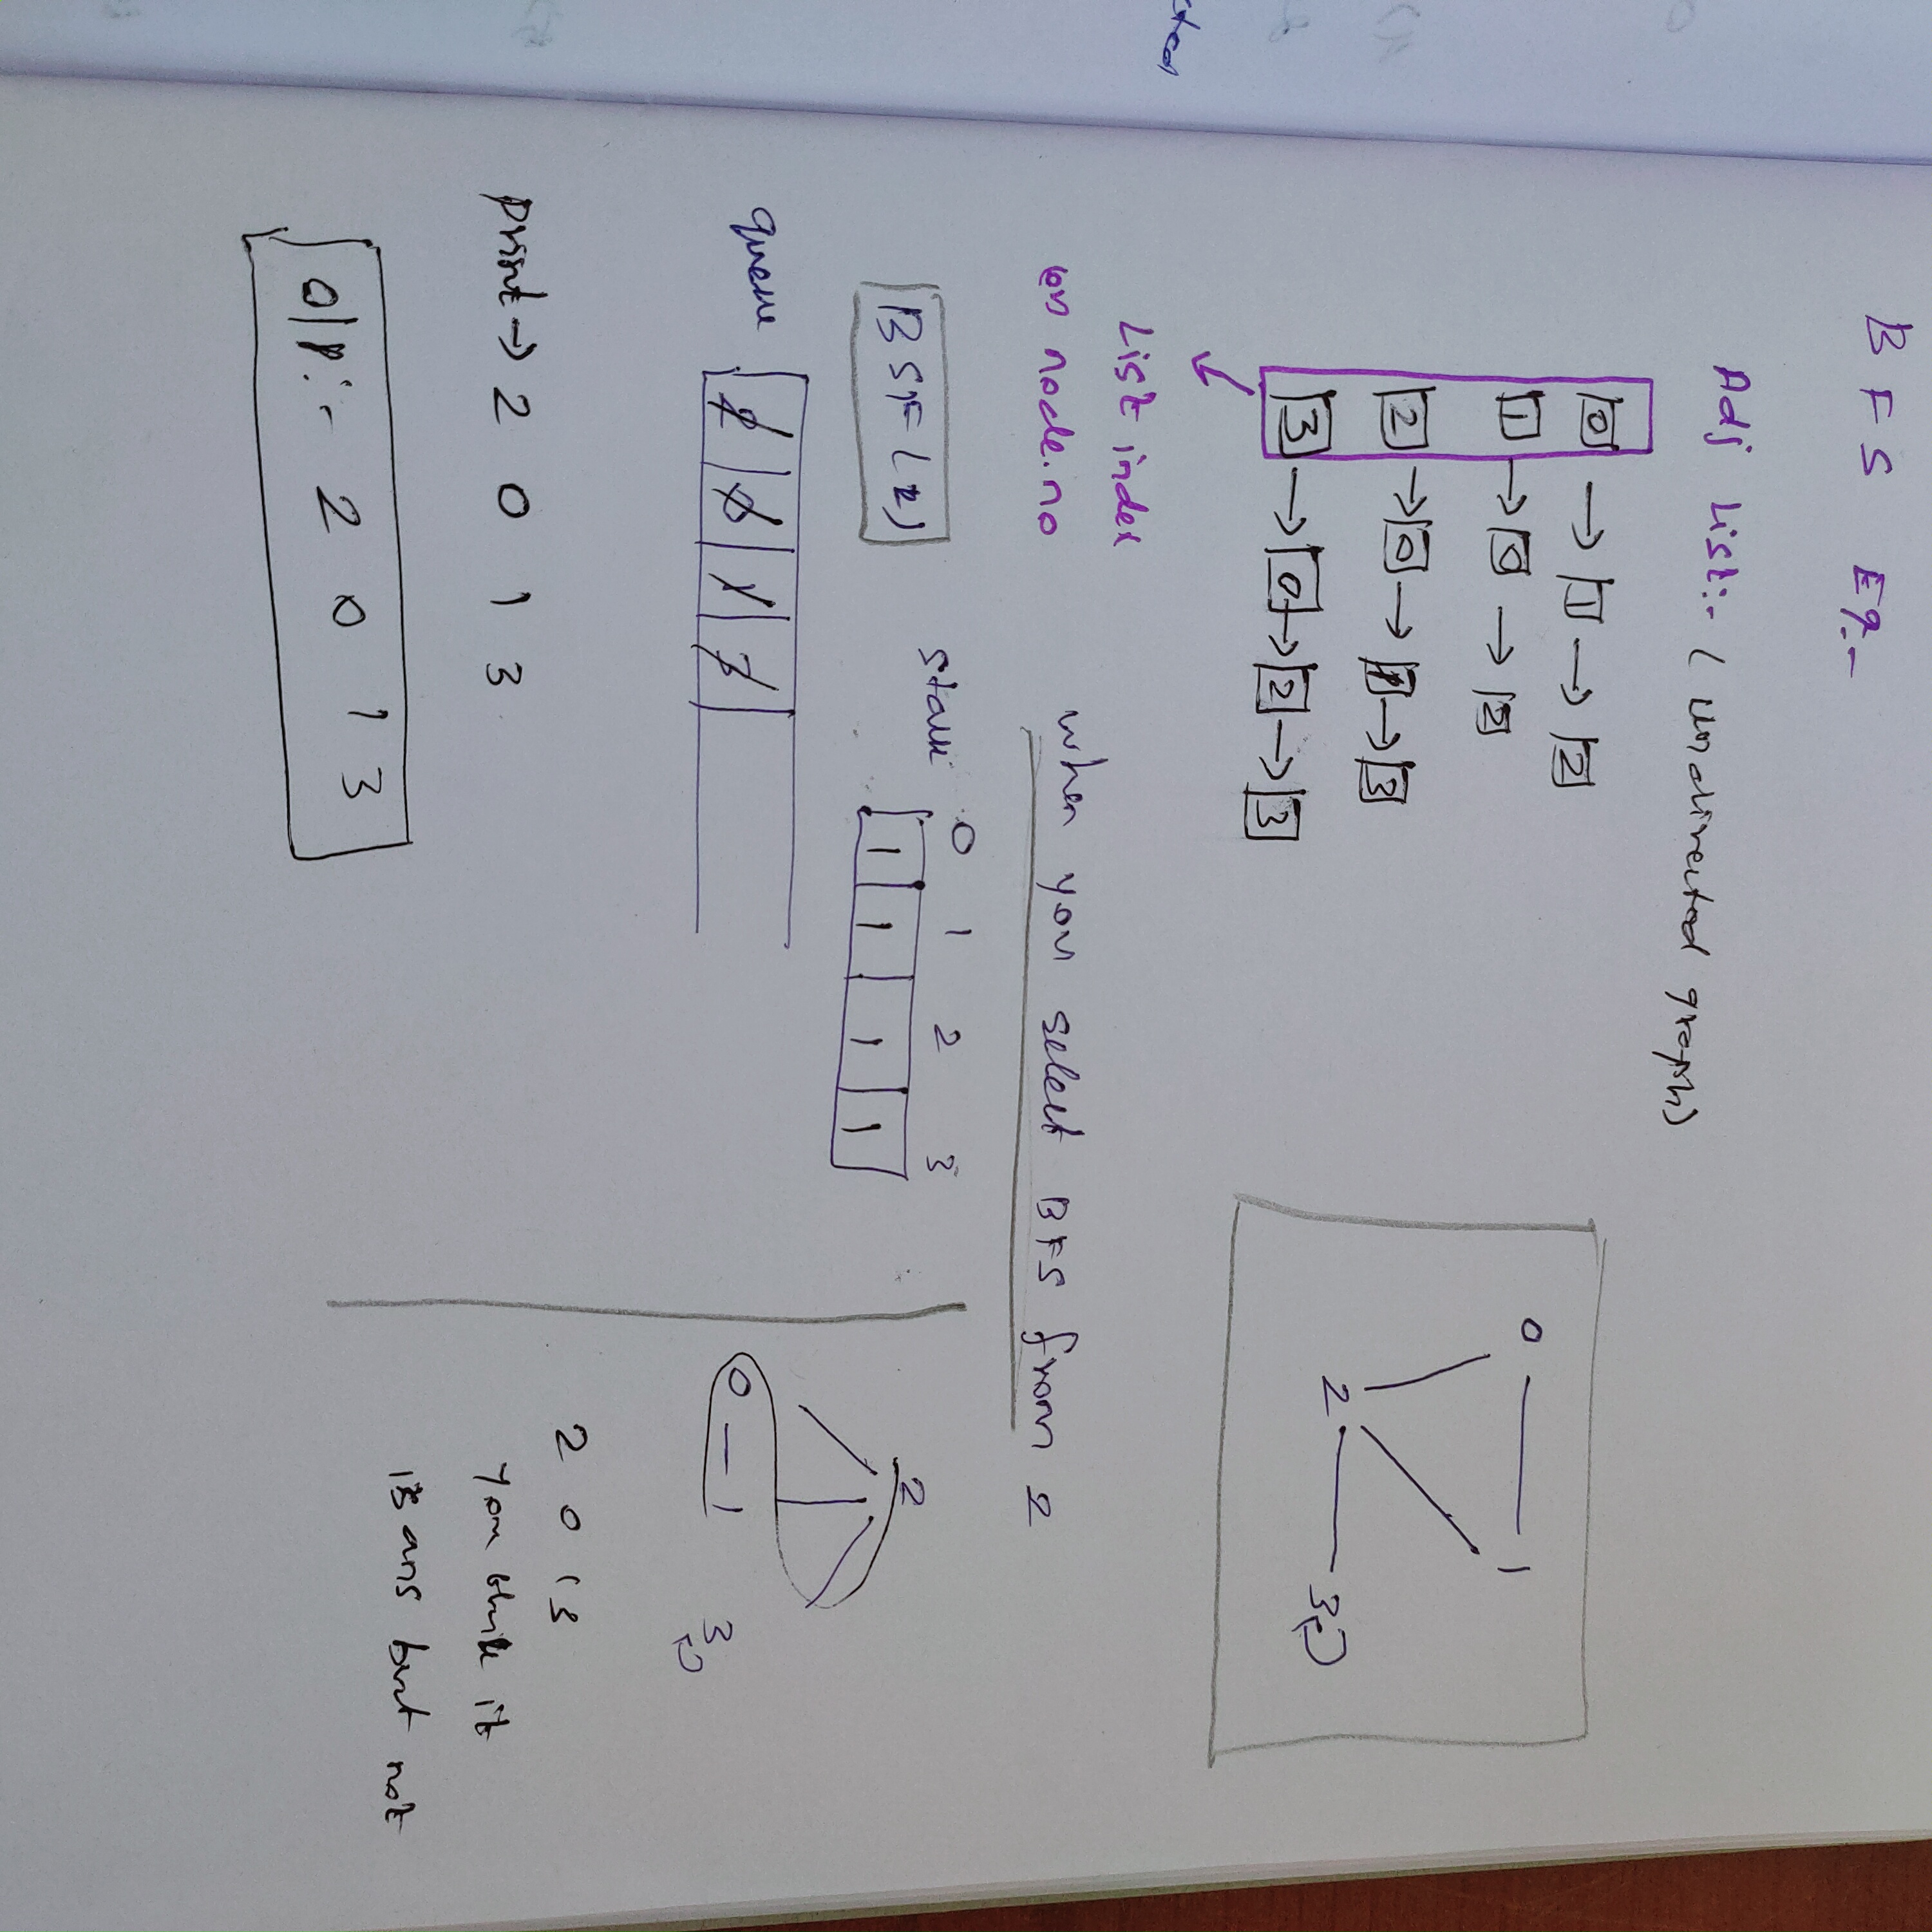 BFS Eg:-
Adj List:- (undirected graph)
0 → 1 → 2
1 → 0 → 2
2 → 0 → 1 → 3
3 → 0 → 2 → 3
0 1
2 3
List index
node.no
when you select BFS from 2
BSF(2)
0 1 2 3
1 1 1 1
queue 2 0 1 3
print → 2 0 1 3
O/P:- 2 0 1 3
2
0 — 1 3
2 0 1 3
you think it
is ans but not